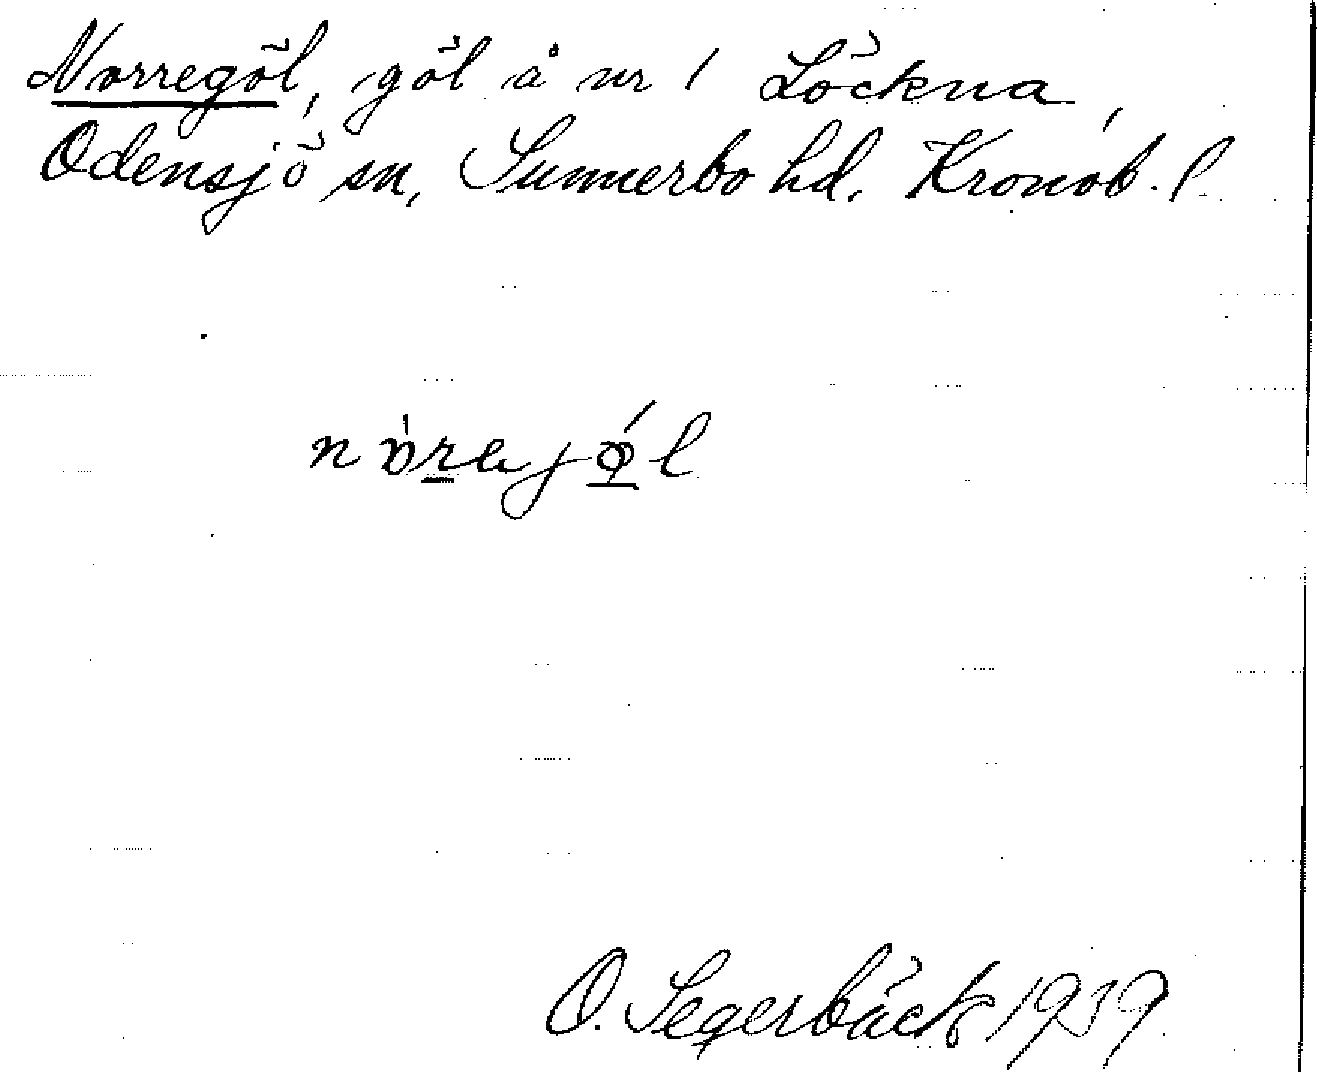 Norregöl, göl å nr 1 Löckna,
Odensjö sn, Sunnerbo hd. Kronob. l.
nòrejǿl
O. Segerbäck 1939